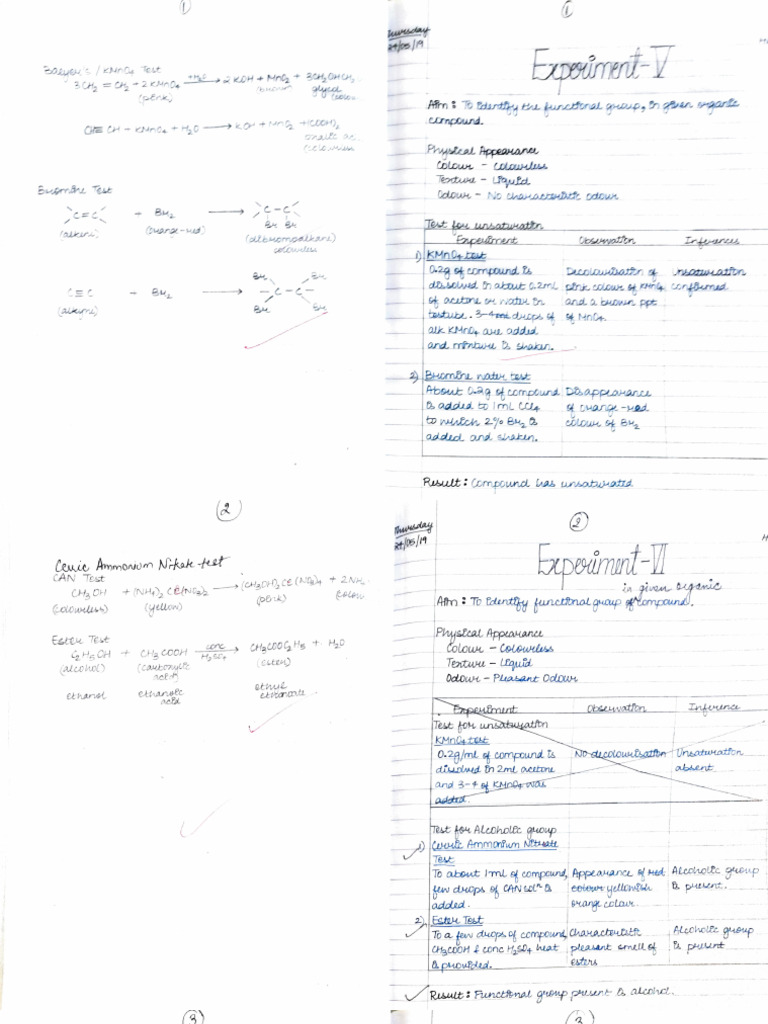 1
Baeyer's / KMnO4 Test
3CH2 = CH2 + 2KMnO4 +H2O → 2KOH + MnO2 + 3CH2OHCH2
(pink) (brown) glycol
CH≡CH - KMnO4 + H2O → KOH + MnO2 + (COOH)2
oxalic ac.
(colourless
Bromine Test
C=C + Br2 → C - C
(alkene) (orange-red) Br Br
(dibromoalkane)
colourless
C≡C + Br2 → Br Br
- C - C -
(alkyne) Br Br
1
Thursday
24/05/19
Experiment-V
Aim : To identify the functional group, in given organic
compound.
Physical Appearance
Colour - Colourless
Texture - Liquid
Odour - No characteristic odour
Test for unsaturation
Experiment Observation Inferences
1) KMnO4 test
0.2g of compound is Decolourisation of unsaturation
dissolved in about 0.2ml pink colour of KMnO4 confirmed
of acetone or water in and a brown ppt
testube. 3-4 drops of of MnO2.
alk KMnO4 are added
and mixture is shaken.
2) Bromine water test
About 0.2g of compound Disappearance
is added to 1mL CCl4 of orange-red
to which 2% Br2 is colour of Br2
added and shaken.
Result : Compound has unsaturated
2
Ceric Ammonium Nitrate test
CAN Test
CH3OH + (NH4)2 Ce(NO3)2 → (CH3OH)3Ce(NO3)4 + 2NH4
(colourless) (yellow) (pink) (colou
Ester Test
C2H5OH + CH3COOH conc H2SO4 → CH3COOC2H5 + H2O
(alcohol) (carboxylic (ester)
acid)
ethanol ethanoic ethyl
acid ethanoate
2
Thursday
24/05/19
Experiment-VI
in given organic
Aim : To identify functional group of compound.
Physical Appearance
Colour - Colourless
Texture - Liquid
Odour - Pleasant Odour
Experiment Observation Inference
Test for unsaturation
KMnO4 test
0.2g/ml of compound is No decolourisation Unsaturation
dissolved in 2ml acetone absent
and 3-4 of KMnO4 was
added.
Test for Alcoholic group
1) Cerric Ammonium Nitrate
Test
To about 1ml of compound, Appearance of red Alcoholic group
few drops of CAN solⁿ is colour yellowish is present.
added. orange colour
2) Ester Test
To a few drops of compound, Characteristic Alcoholic group
CH3COOH & conc H2SO4 heat pleasant smell of is present
is provided. esters
Result : Functional group present is alcohol.
3
3